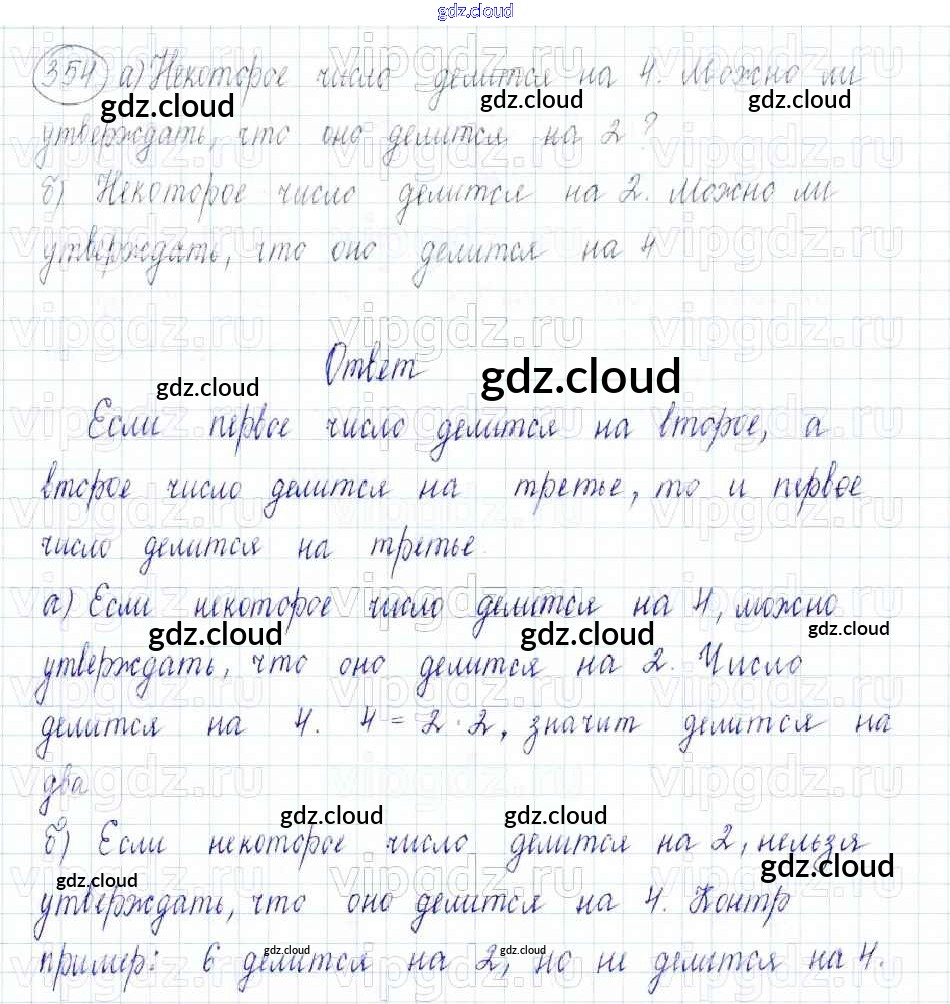 gdz.cloud
354 а) Некоторое число делится на 4. Можно ли
gdz.cloud gdz.cloud gdz.cloud
утверждать, что оно делится на 2?
б) Некоторое число делится на 2. Можно ли
утверждать, что оно делится на 4
vipgdz.ru vipgdz.ru vipgdz.ru
Ответ
gdz.cloud gdz.cloud
Если первое число делится на второе, а
второе число делится на третье, то и первое
число делится на третье.
а) Если некоторое число делится на 4, можно
gdz.cloud gdz.cloud gdz.cloud
утверждать, что оно делится на 2. Число
делится на 4. 4 = 2 · 2, значит делится на
два
gdz.cloud gdz.cloud
б) Если некоторое число делится на 2, нельзя
gdz.cloud gdz.cloud
утверждать, что оно делится на 4. Контр
пример: 6 делится на 2, но не делится на 4.
gdz.cloud gdz.cloud